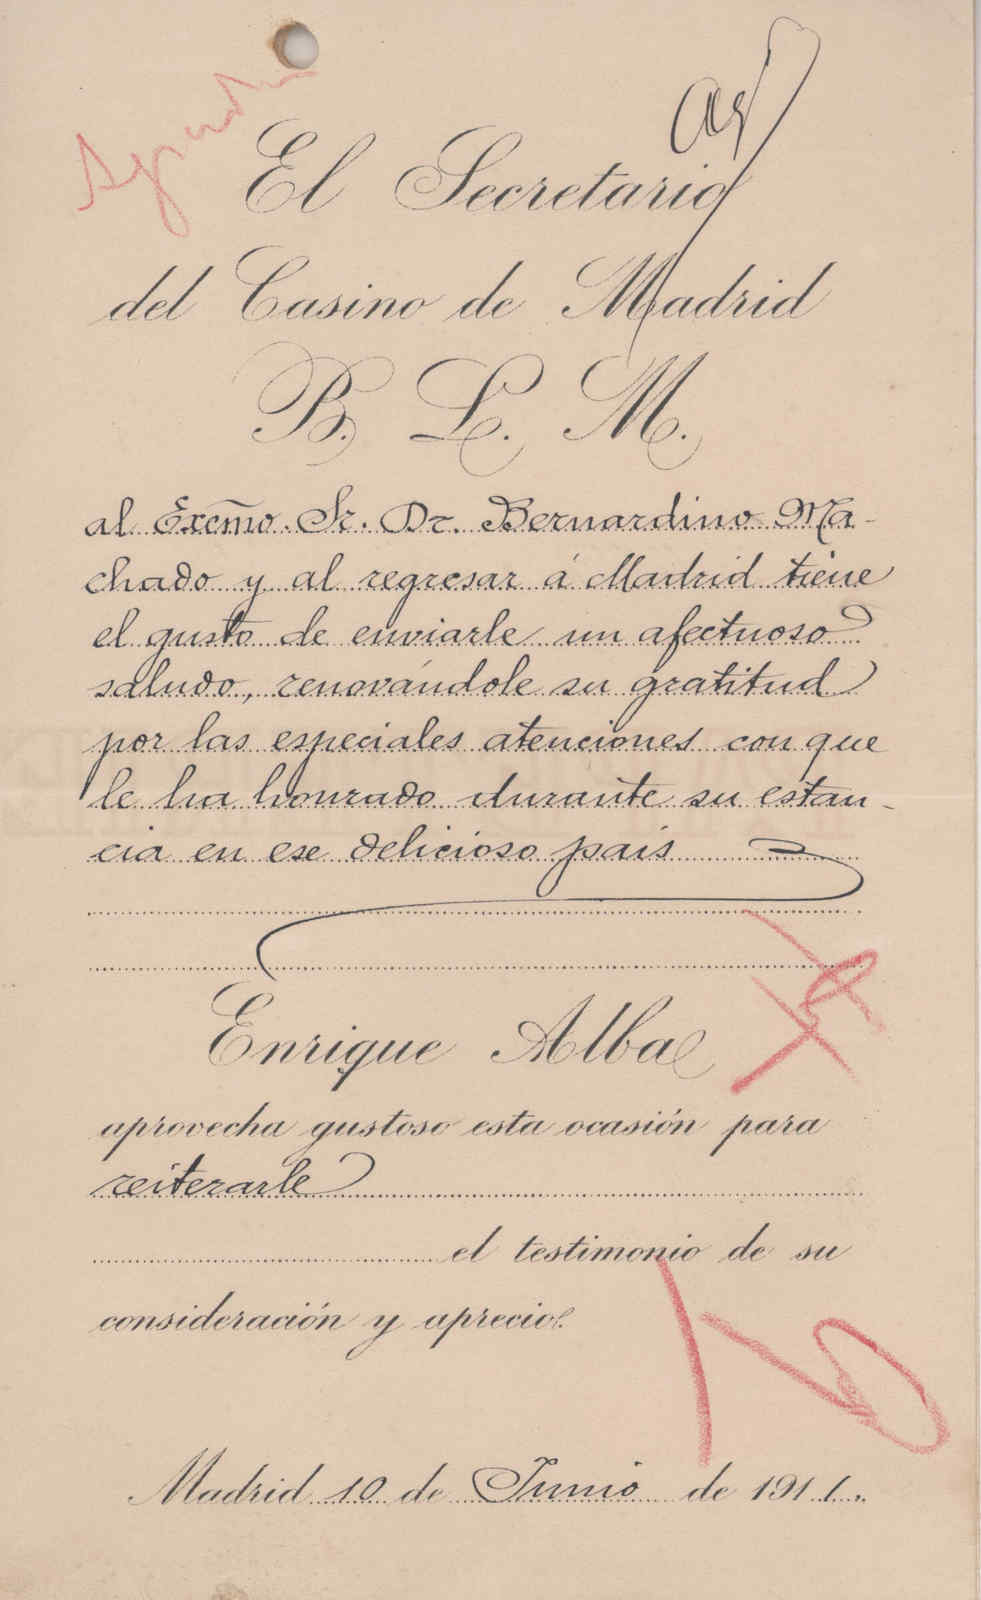 El Secretario
del Casino de Madrid
B. L. M.
al Excm̃o. Sr. Dr. Bernardino Ma-
chado y al regresar á Madrid tiene
el gusto de enviarle un afectuoso
saludo, renovándole su gratitud
por las especiales atenciones con que
le ha honrado durante su estan-
cia en ese delicioso pais
Enrique Alba
aprovecha gustoso esta ocasión para
reiterarle
el testimonio de su
consideración y aprecio.
Madrid 10 de Junio de 1911.